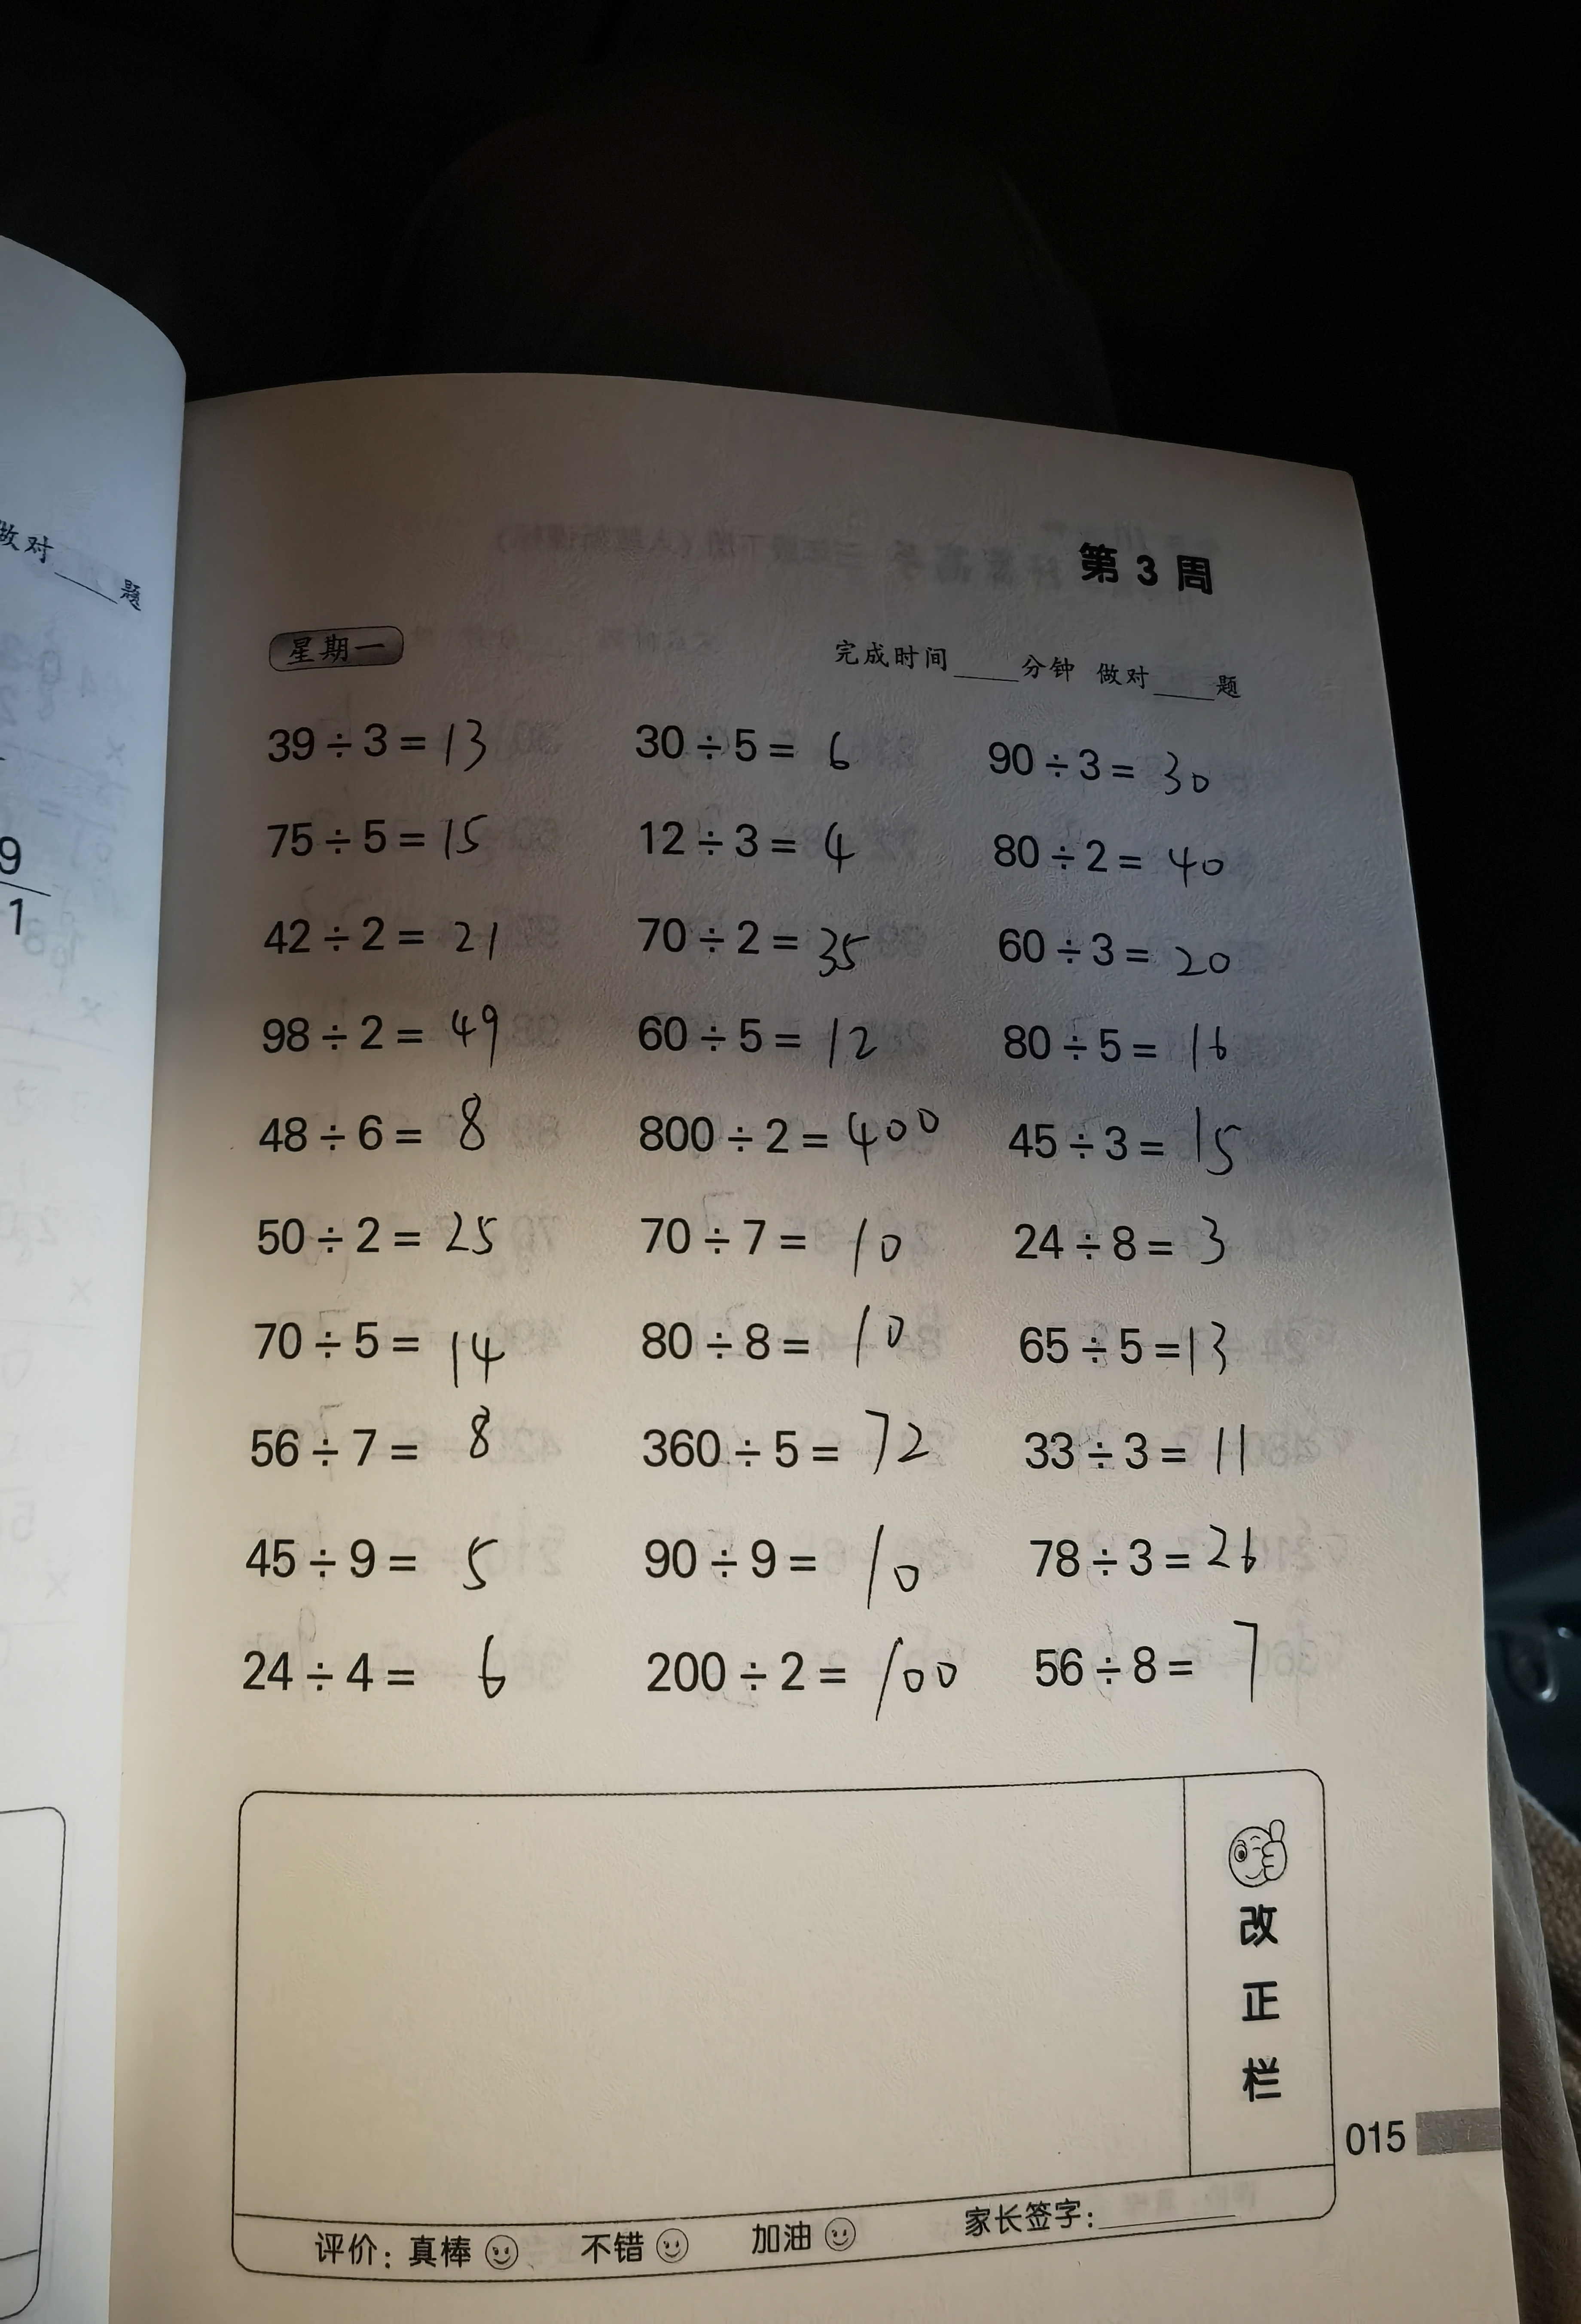 做对____题
9
1
第 3 周
星期一
完成时间____分钟 做对____题
39÷3=13 30÷5=6 90÷3=30
75÷5=15 12÷3=4 80÷2=40
42÷2=21 70÷2=35 60÷3=20
98÷2=49 60÷5=12 80÷5=16
48÷6=8 800÷2=400 45÷3=15
50÷2=25 70÷7=10 24÷8=3
70÷5=14 80÷8=10 65÷5=13
56÷7=8 360÷5=72 33÷3=11
45÷9=5 90÷9=10 78÷3=26
24÷4=6 200÷2=100 56÷8=7
改正栏
015
评价：真棒 不错 加油 家长签字：________